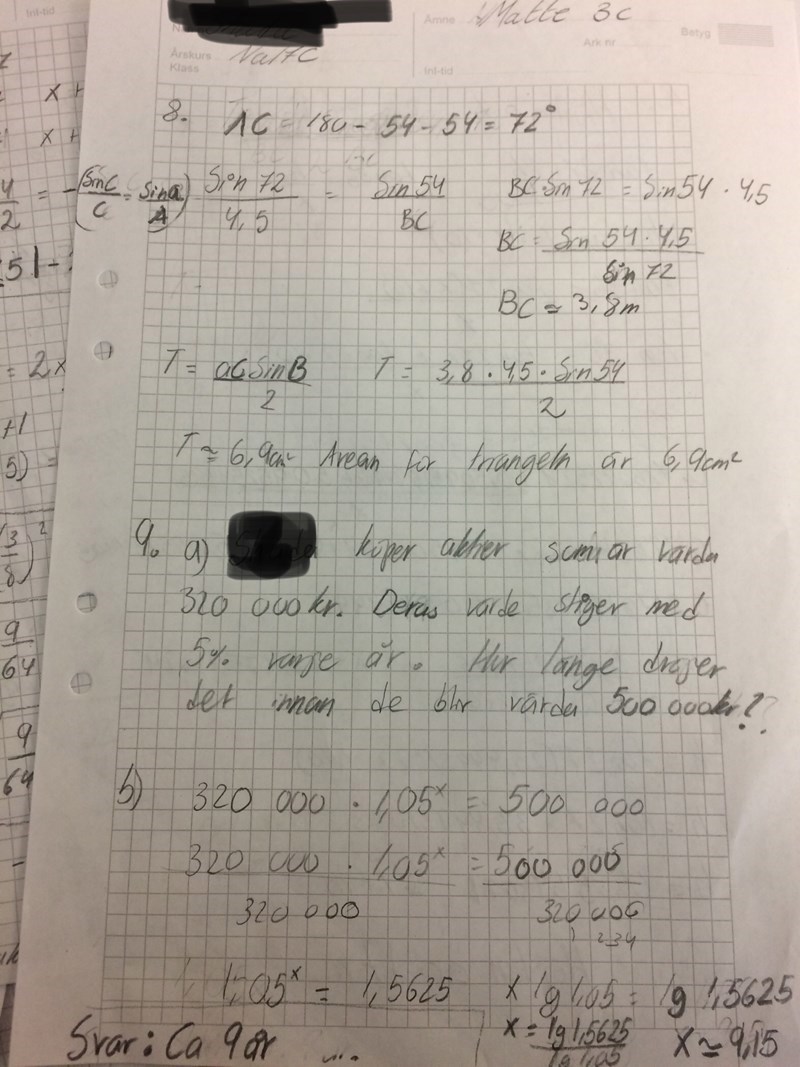 Ämne Matte 3c
Årskurs
Klass
Ark nr
Betyg
Inl-tid
Inl-tid
8. ∧C = 180 - 54 - 54 = 72°
(SinC/C = Sina/A) Sin 72/4,5 = Sin 54/BC
BC Sin 72 = Sin 54 · 4,5
BC = Sin 54 · 4,5/Sin 72
BC ≈ 3,8m
T = acSinB/2 T = 3,8 · 4,5 · Sin 54/2
T ≈ 6,9cm² Arean för triangeln är 6,9cm²
9. a) köper aktier som är värda
320 000 kr. Deras värde stiger med
5% varje år. Hur länge dröjer
det innan de blir värda 500 000kr??
b) 320 000 · 1,05ˣ = 500 000
320 000 · 1,05ˣ/320 000 = 500 000/320 000
1 234
1,05ˣ = 1,5625 x lg 1,05 = lg 1,5625
x = lg 1,5625/lg 1,05 x ≈ 9,15
Svar: Ca 9 år ...